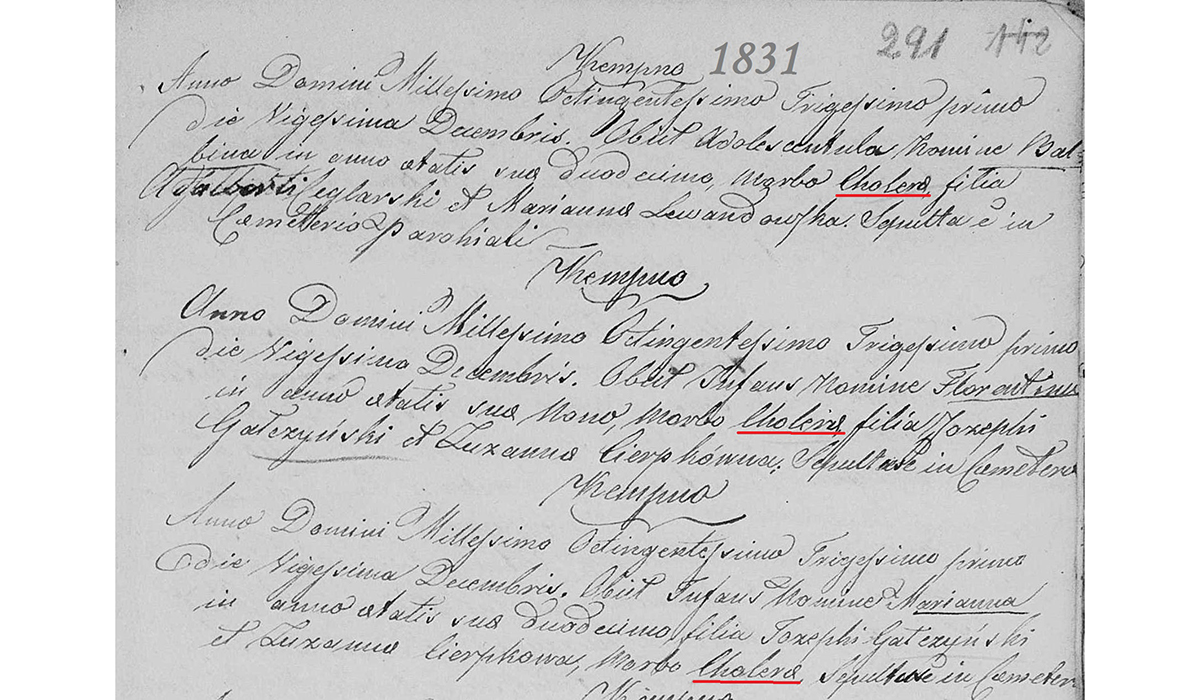 291 112
Kempno 1831
Anno Domini Millessimo Octingentessimo Trigessimo primo
die Vigessima Decembris. Obiit Adolescentula Nomine Bal-
bina in anno ætatis suæ duodecimo, Morbo Choleræ filia
Adalberti Ceglarski et Marianna Lewandowska. Sepulta ẽ in
Cœmetterio Parohiali
Kempno
Anno Domini Millessimo Octingentessimo Trigessimo primo
die Vigessima Decembris. Obiit Infans Nomine Florentina
in anno ætatis suæ Nono, Morbo Choleræ filia Jozephi
Gatczyński et Zuzanna Cierpkowna. Sepulta in Cœmeterio
Kempno
Anno Domini Millessimo Octingentessimo Trigessimo primo
die Vigessima Decembris. Obiit Infans Nomine Marianna
in anno ætatis suæ duodecimo filia Jozephi Gatczyński
et Zuzanna Cierpkowa, Morbo Choleræ Sepulta in Cœmeter
Kempno